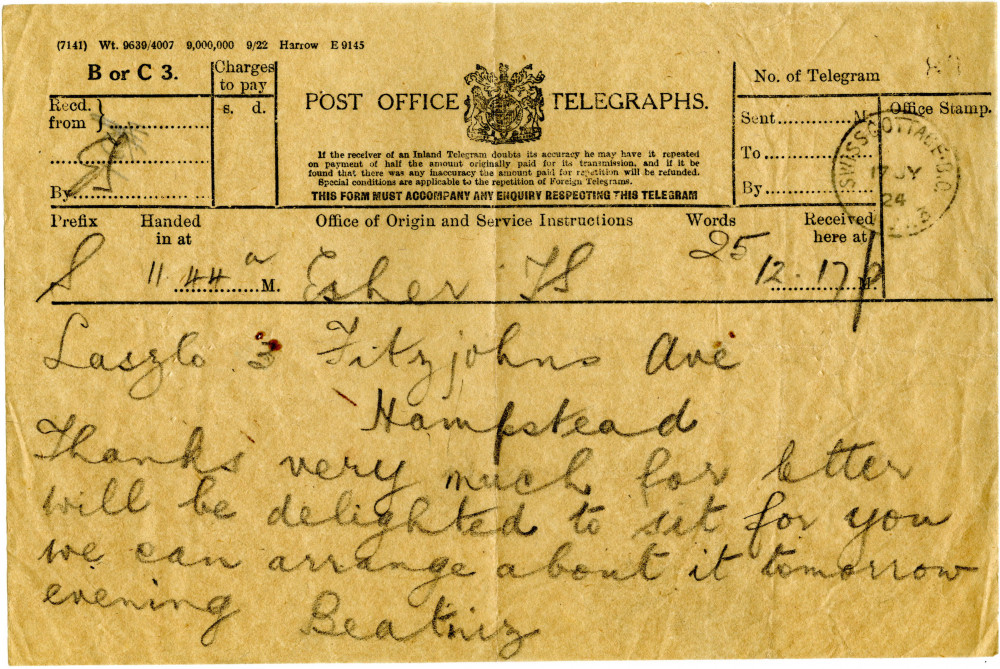 (7141) Wt. 9639/4007 9,000,000 9/22 Harrow E 9145
B or C 3.
Charges
to pay
s. d.
Recd.
from
By
POST OFFICE TELEGRAPHS.
If the receiver of an Inland Telegram doubts its accuracy he may have it repeated
on payment of half the amount originally paid for its transmission, and if it be
found that there was any inaccuracy the amount paid for repetition will be refunded.
Special conditions are applicable to the repetition of Foreign Telegrams.
THIS FORM MUST ACCOMPANY ANY ENQUIRY RESPECTING THIS TELEGRAM
No. of Telegram
Sent M.
To
By
Office Stamp.
SWISS COTTAGE B.O.
17 JY
24
Prefix Handed
in at
Office of Origin and Service Instructions
Words
Received
here at
S 11.44 a M. Esher TS 25 12.17 p M.
Laszlo 3 Fitzjohns Ave
Hampstead
Thanks very much for letter
will be delighted to sit for you
we can arrange about it tomorrow
evening Beatriz